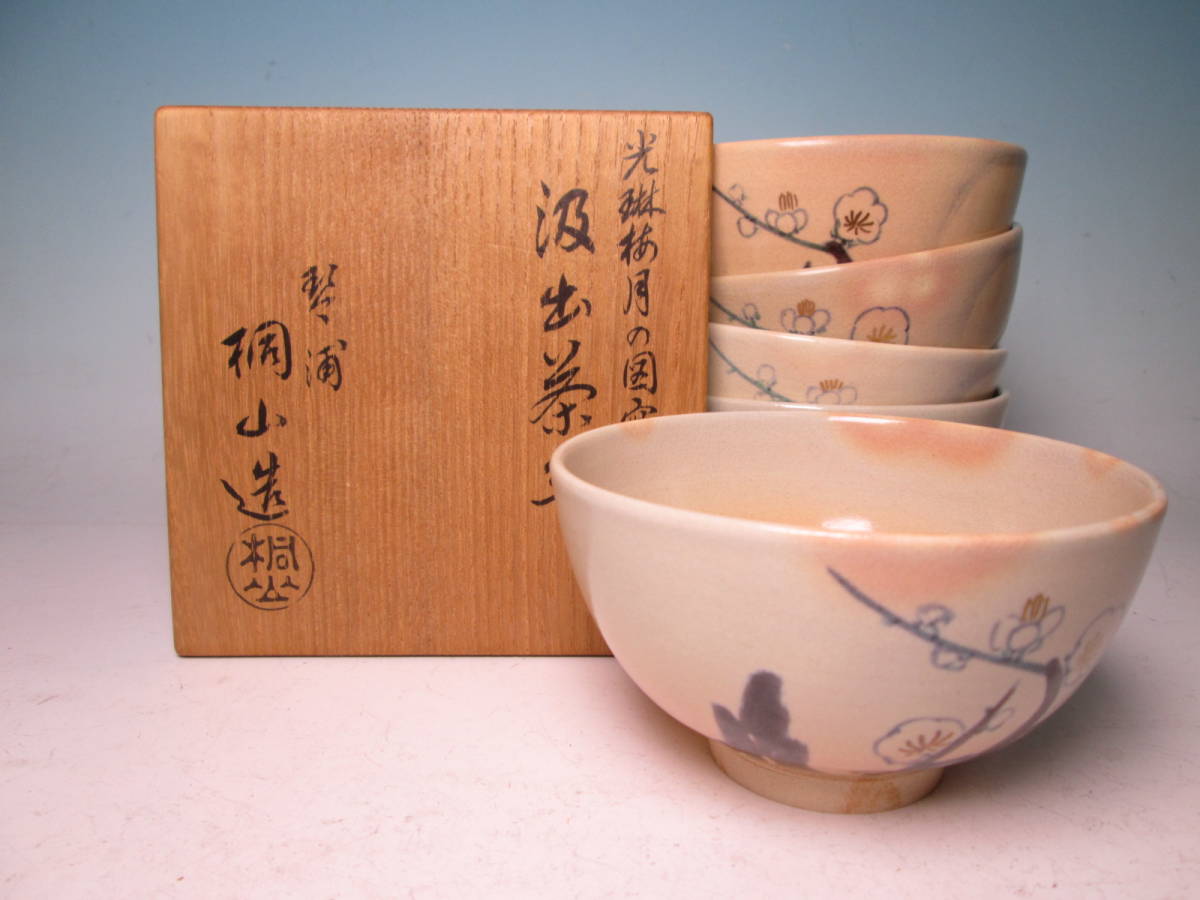 光琳梅月の図
汲出茶
琴浦
桐山造
桐山